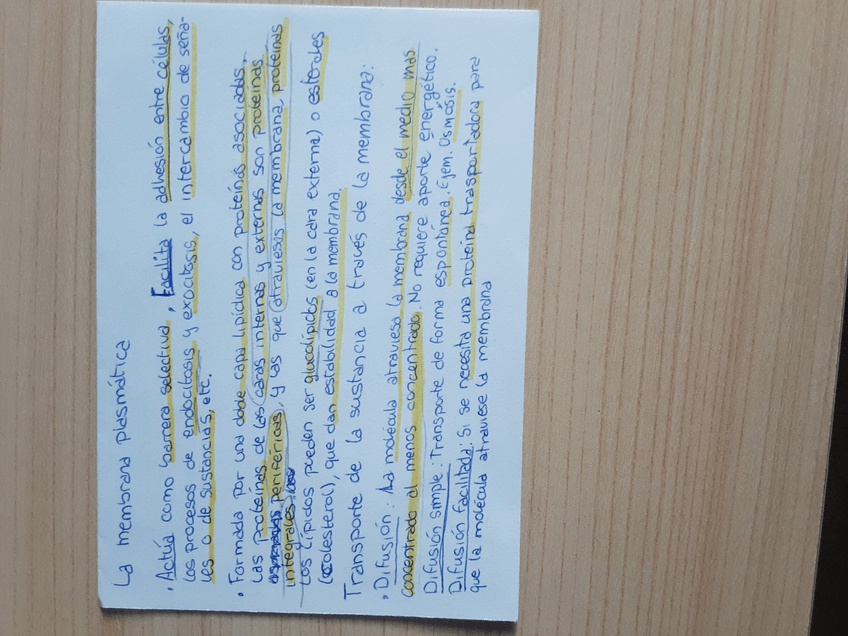 La membrana plasmática
• Actúa como barrera selectiva, Facilita la adhesión entre células,
los procesos de endocitosis y exocitosis, el intercambio de seña-
les o de sustancias, etc.
• Formada por una doble capa lipídica con proteínas asociadas.
Las proteínas de las caras internas y externas son proteínas
periféricas, y las que atraviesas la membrana, proteínas
integrales.
Los Lípidos pueden ser glucolípidos (en la cara externa) o esterales
(colesterol), que dan estabilidad a la membrana.
Transporte de la sustancia a través de la membrana:
• Difusión: La molécula atraviesa la membrana desde el medio mas
concentrado al menos concentrado. No requiere aporte energético.
Difusión simple: Transporte de forma espontánea. Ejem. Osmosis.
Difusión facilitada: Si se necesita una proteína trasportadora para
que la molécula atraviese la membrana